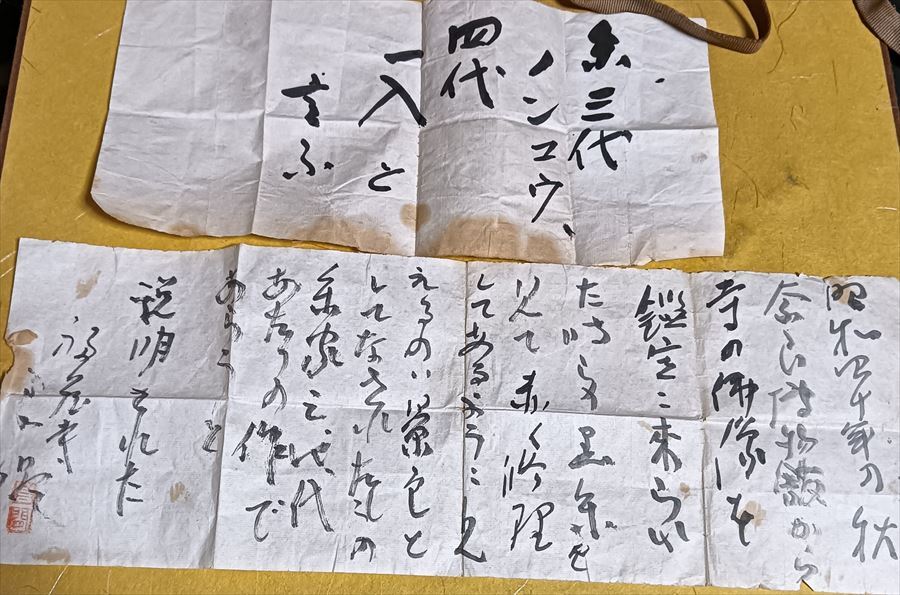 楽三代
ノンコウ、
四代
一入と
云ふ
昭和四十年の秋
奈良博物館から
寺の佛像を
鑑定に来られ
た時 黒楽を
見て赤く修理
してあるように見
えるのは 窯変と
してなされたもの
楽家三、四代
あたりの作で
あろうと
説明された